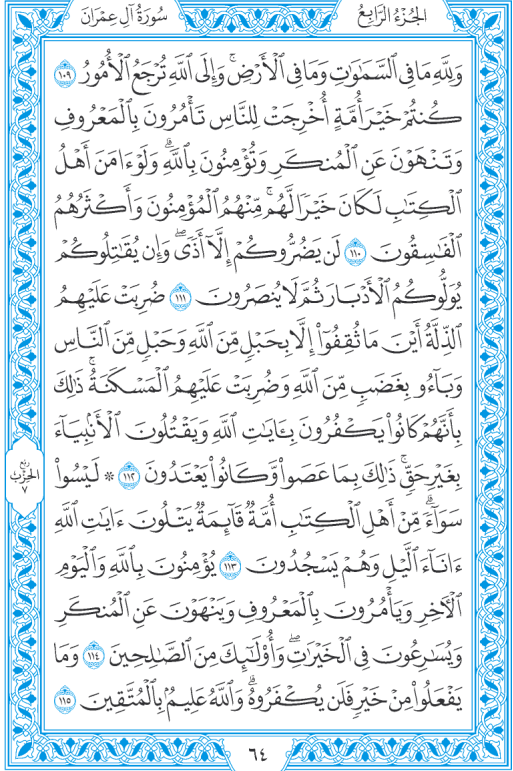 الجُزْءُ الرَّابِعُ
سُورَةُ آلِ عِمْرَانَ
وَلِلَّهِ مَا فِي ٱلسَّمَٰوَٰتِ وَمَا فِي ٱلْأَرْضِۚ وَإِلَى ٱللَّهِ تُرْجَعُ ٱلْأُمُورُ ١٠٩
كُنتُمْ خَيْرَ أُمَّةٍ أُخْرِجَتْ لِلنَّاسِ تَأْمُرُونَ بِٱلْمَعْرُوفِ
وَتَنْهَوْنَ عَنِ ٱلْمُنكَرِ وَتُؤْمِنُونَ بِٱللَّهِۗ وَلَوْ ءَامَنَ أَهْلُ
ٱلْكِتَٰبِ لَكَانَ خَيْرًا لَّهُمۚ مِّنْهُمُ ٱلْمُؤْمِنُونَ وَأَكْثَرُهُمُ
ٱلْفَٰسِقُونَ ١١٠ لَن يَضُرُّوكُمْ إِلَّآ أَذًىۖ وَإِن يُقَٰتِلُوكُمْ
يُوَلُّوكُمُ ٱلْأَدْبَارَ ثُمَّ لَا يُنصَرُونَ ١١١ ضُرِبَتْ عَلَيْهِمُ
ٱلذِّلَّةُ أَيْنَ مَا ثُقِفُوٓا۟ إِلَّا بِحَبْلٍ مِّنَ ٱللَّهِ وَحَبْلٍ مِّنَ ٱلنَّاسِ
وَبَآءُو بِغَضَبٍ مِّنَ ٱللَّهِ وَضُرِبَتْ عَلَيْهِمُ ٱلْمَسْكَنَةُۚ ذَٰلِكَ
بِأَنَّهُمْ كَانُوا۟ يَكْفُرُونَ بِـَٔايَٰتِ ٱللَّهِ وَيَقْتُلُونَ ٱلْأَنۢبِيَآءَ
بِغَيْرِ حَقٍّۚ ذَٰلِكَ بِمَا عَصَوا۟ وَّكَانُوا۟ يَعْتَدُونَ ١١٢ ۞ لَيْسُوا۟
سَوَآءًۗ مِّنْ أَهْلِ ٱلْكِتَٰبِ أُمَّةٌ قَآئِمَةٌ يَتْلُونَ ءَايَٰتِ ٱللَّهِ
ءَانَآءَ ٱلَّيْلِ وَهُمْ يَسْجُدُونَ ١١٣ يُؤْمِنُونَ بِٱللَّهِ وَٱلْيَوْمِ
ٱلْأَخِرِ وَيَأْمُرُونَ بِٱلْمَعْرُوفِ وَيَنْهَوْنَ عَنِ ٱلْمُنكَرِ
وَيُسَٰرِعُونَ فِي ٱلْخَيْرَٰتِۖ وَأُو۟لَٰٓئِكَ مِنَ ٱلصَّٰلِحِينَ ١١٤ وَمَا
يَفْعَلُوا۟ مِنْ خَيْرٍ فَلَن يُكْفَرُوهُۗ وَٱللَّهُ عَلِيمٌۢ بِٱلْمُتَّقِينَ ١١٥
ربع
الحزب
٧
٦٤